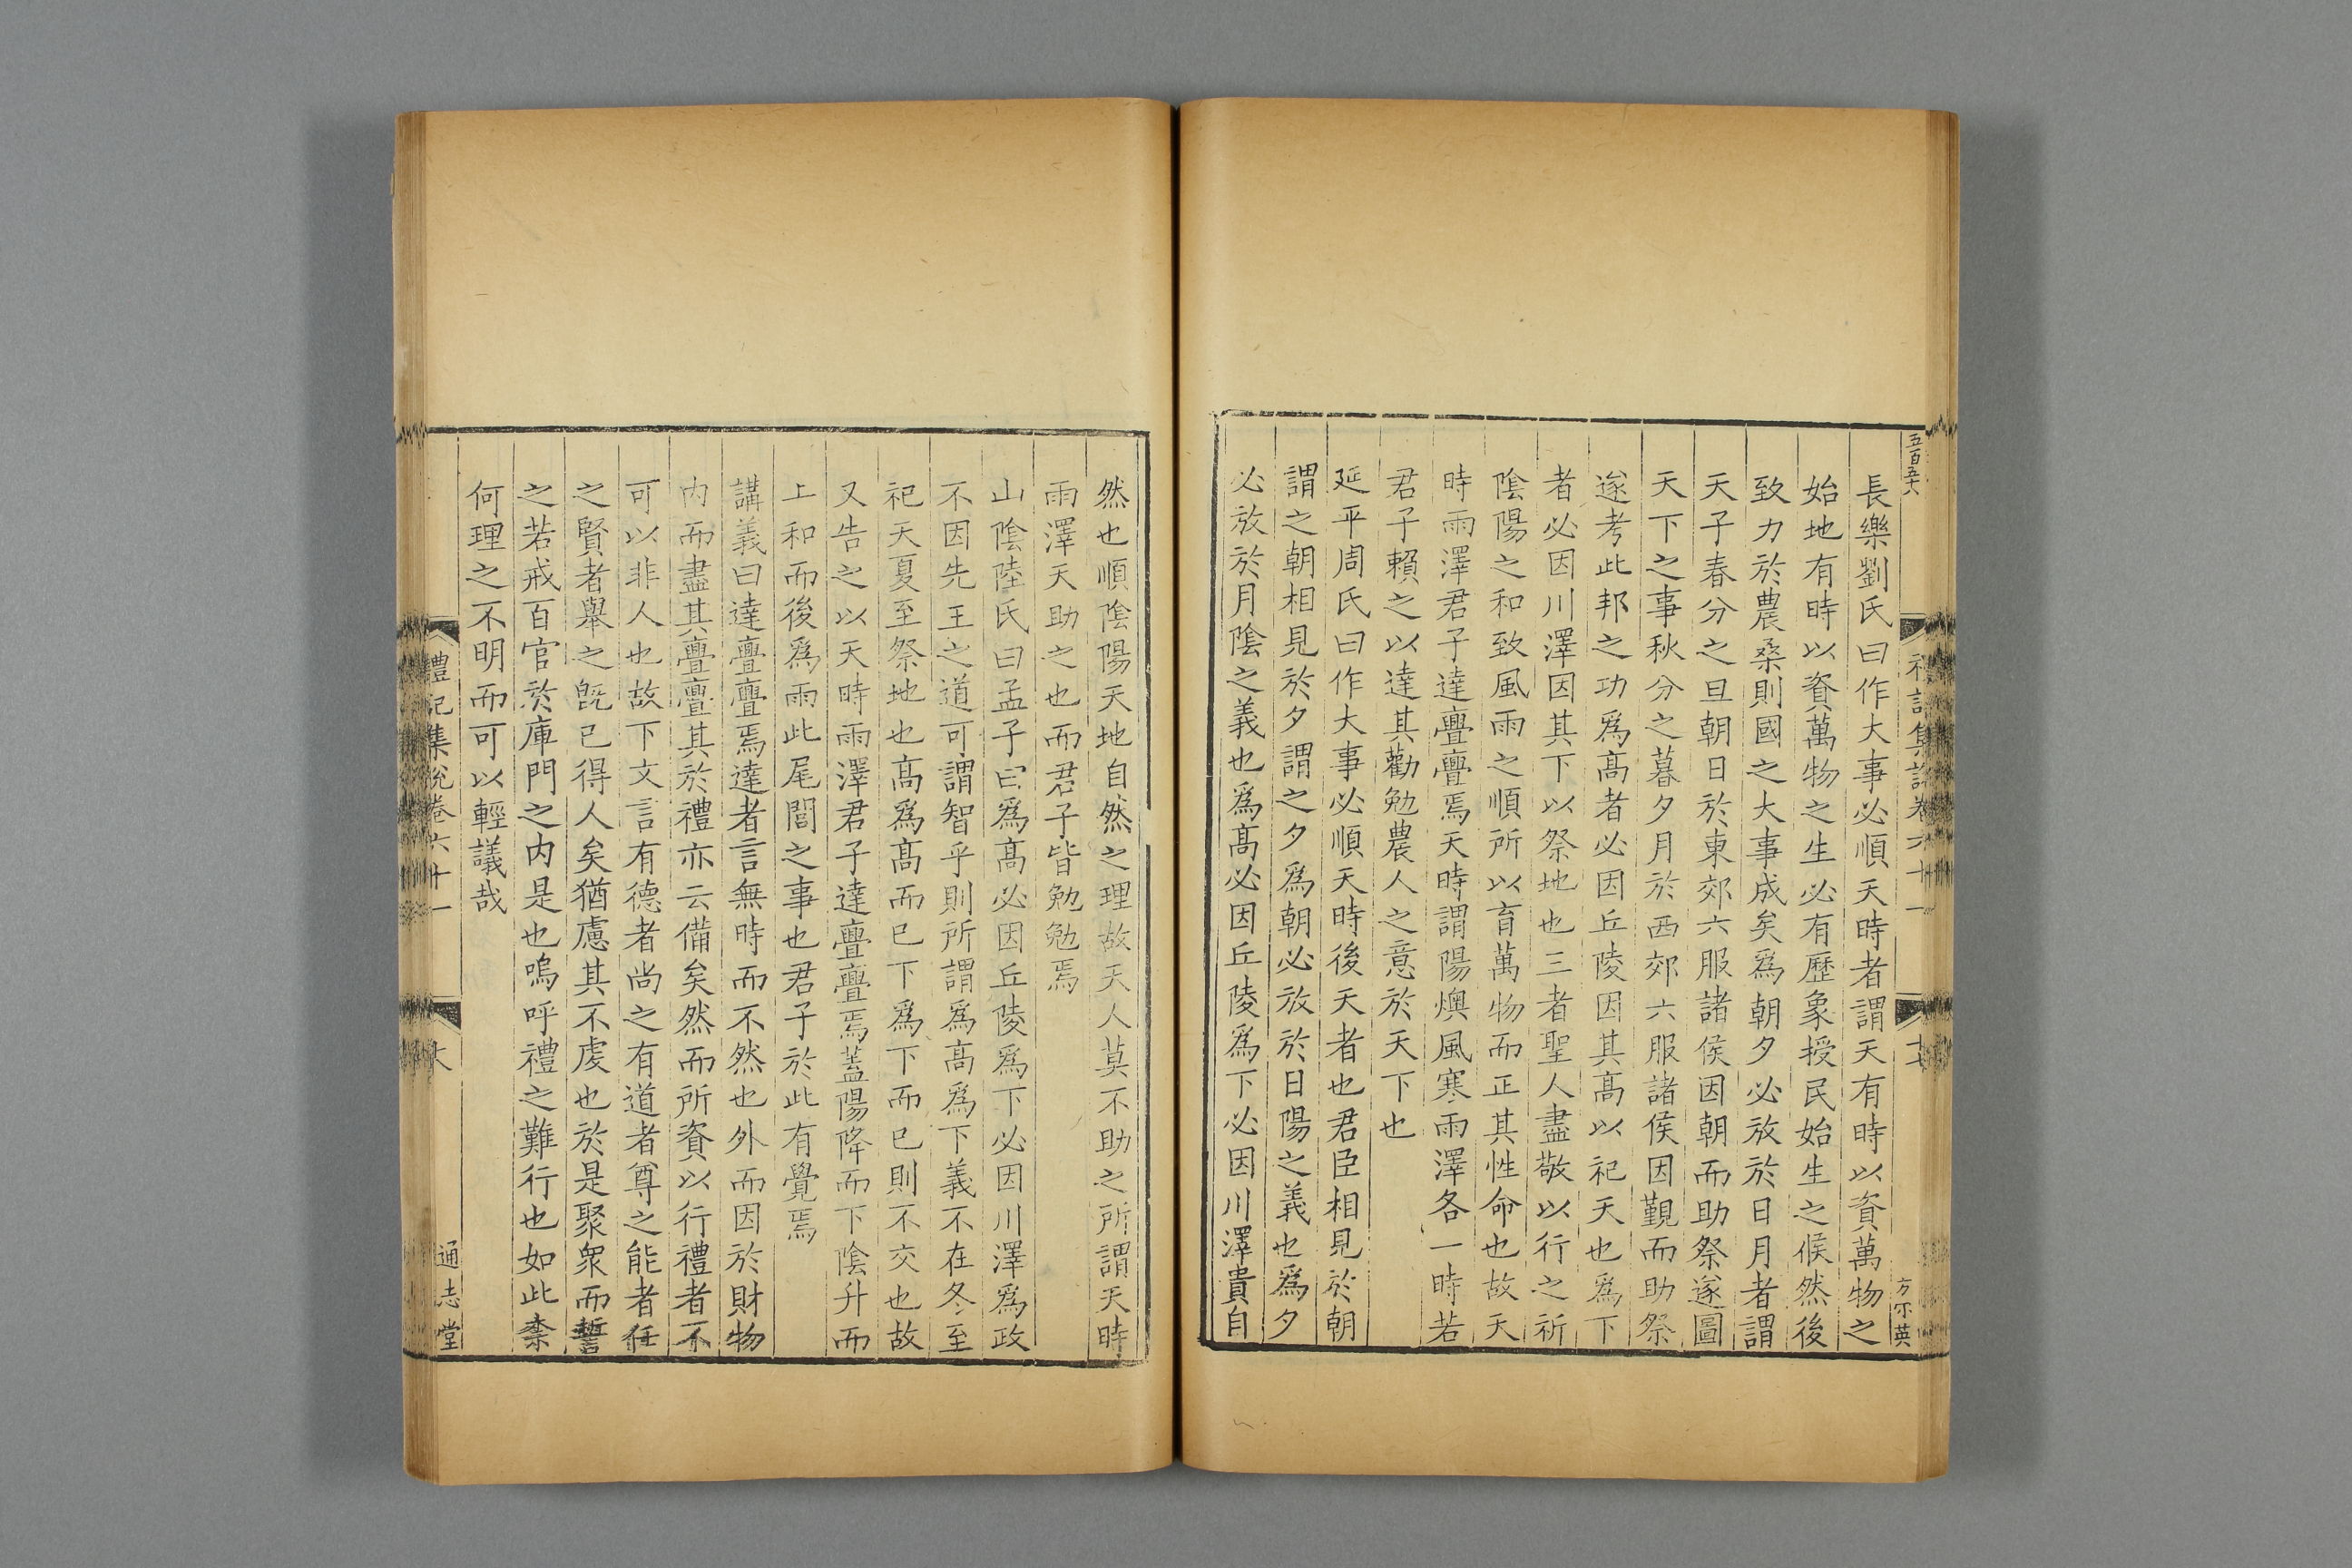 五百五十八
禮記集說卷六十一
十七
方不英
長樂劉氏曰作大事必順天時者謂天有時以資萬物之
始地有時以資萬物之生必有歷象授民始生之候然後
致力於農桑則國之大事成矣爲朝夕必放於日月者謂
天子春分之旦朝日於東郊六服諸侯因朝而助祭遂圖
天下之事秋分之暮夕月於西郊六服諸侯因覲而助祭
遂考此邦之功爲高者必因丘陵因其高以祀天也爲下
者必因川澤因其下以祭地也三者聖人盡敬以行之祈
陰陽之和致風雨之順所以育萬物而正其性命也故天
時雨澤君子達亹亹焉天時謂陽燠風寒雨澤各一時若
君子賴之以達其勸勉農人之意於天下也
延平周氏曰作大事必順天時後天者也君臣相見於朝
謂之朝相見於夕謂之夕爲朝必放於日陽之義也爲夕
必放於月陰之義也爲高必因丘陵爲下必因川澤貴自
然也順陰陽天地自然之理故天人莫不助之所謂天時
雨澤天助之也而君子皆勉勉焉
山陰陸氏曰孟子曰爲高必因丘陵爲下必因川澤爲政
不因先王之道可謂智乎則所謂爲高爲下義不在冬至
祀天夏至祭地也高爲高而已下爲下而已則不交也故
又告之以天時雨澤君子達亹亹焉蓋陽降而下陰升而
上和而後爲雨此尾閭之事也君子於此有覺焉
講義曰達亹亹焉達者言無時而不然也外而因於財物
内而盡其亹亹其於禮亦云備矣然而所資以行禮者不
可以非人也故下文言有德者尚之有道者尊之能者任
之賢者舉之旣已得人矣猶慮其不虔也於是聚衆而誓
之若戒百官於庫門之内是也嗚呼禮之難行也如此柰
何理之不明而可以輕議哉
禮記集說卷六十一
通志堂